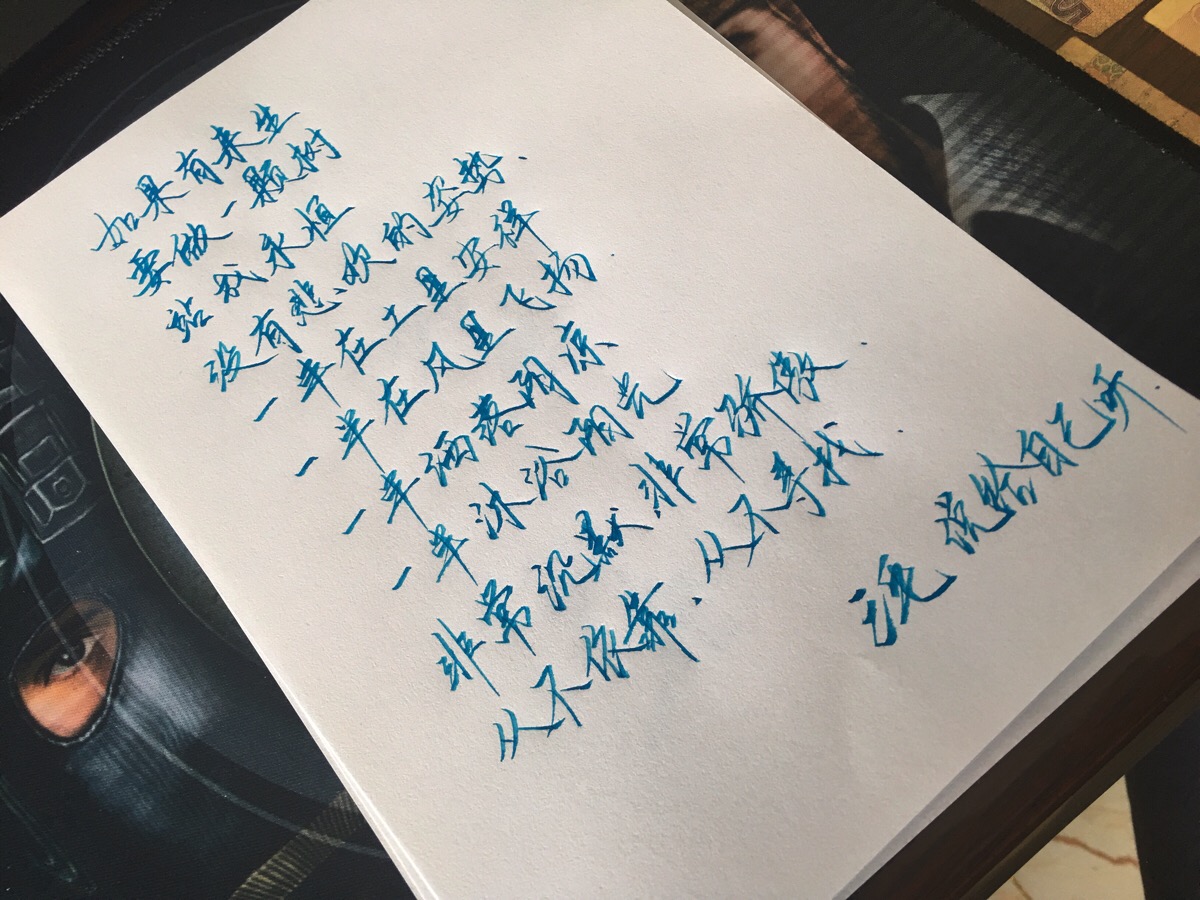 如果有来生
要做一颗树
站成永恒
没有悲、欢的姿势.
一半在土里安祥
一半在风里飞扬.
一半洒落阴凉、
一半沐浴阳光
非常沉默、非常骄傲.
从不依靠、从不寻找.
说给自己听.